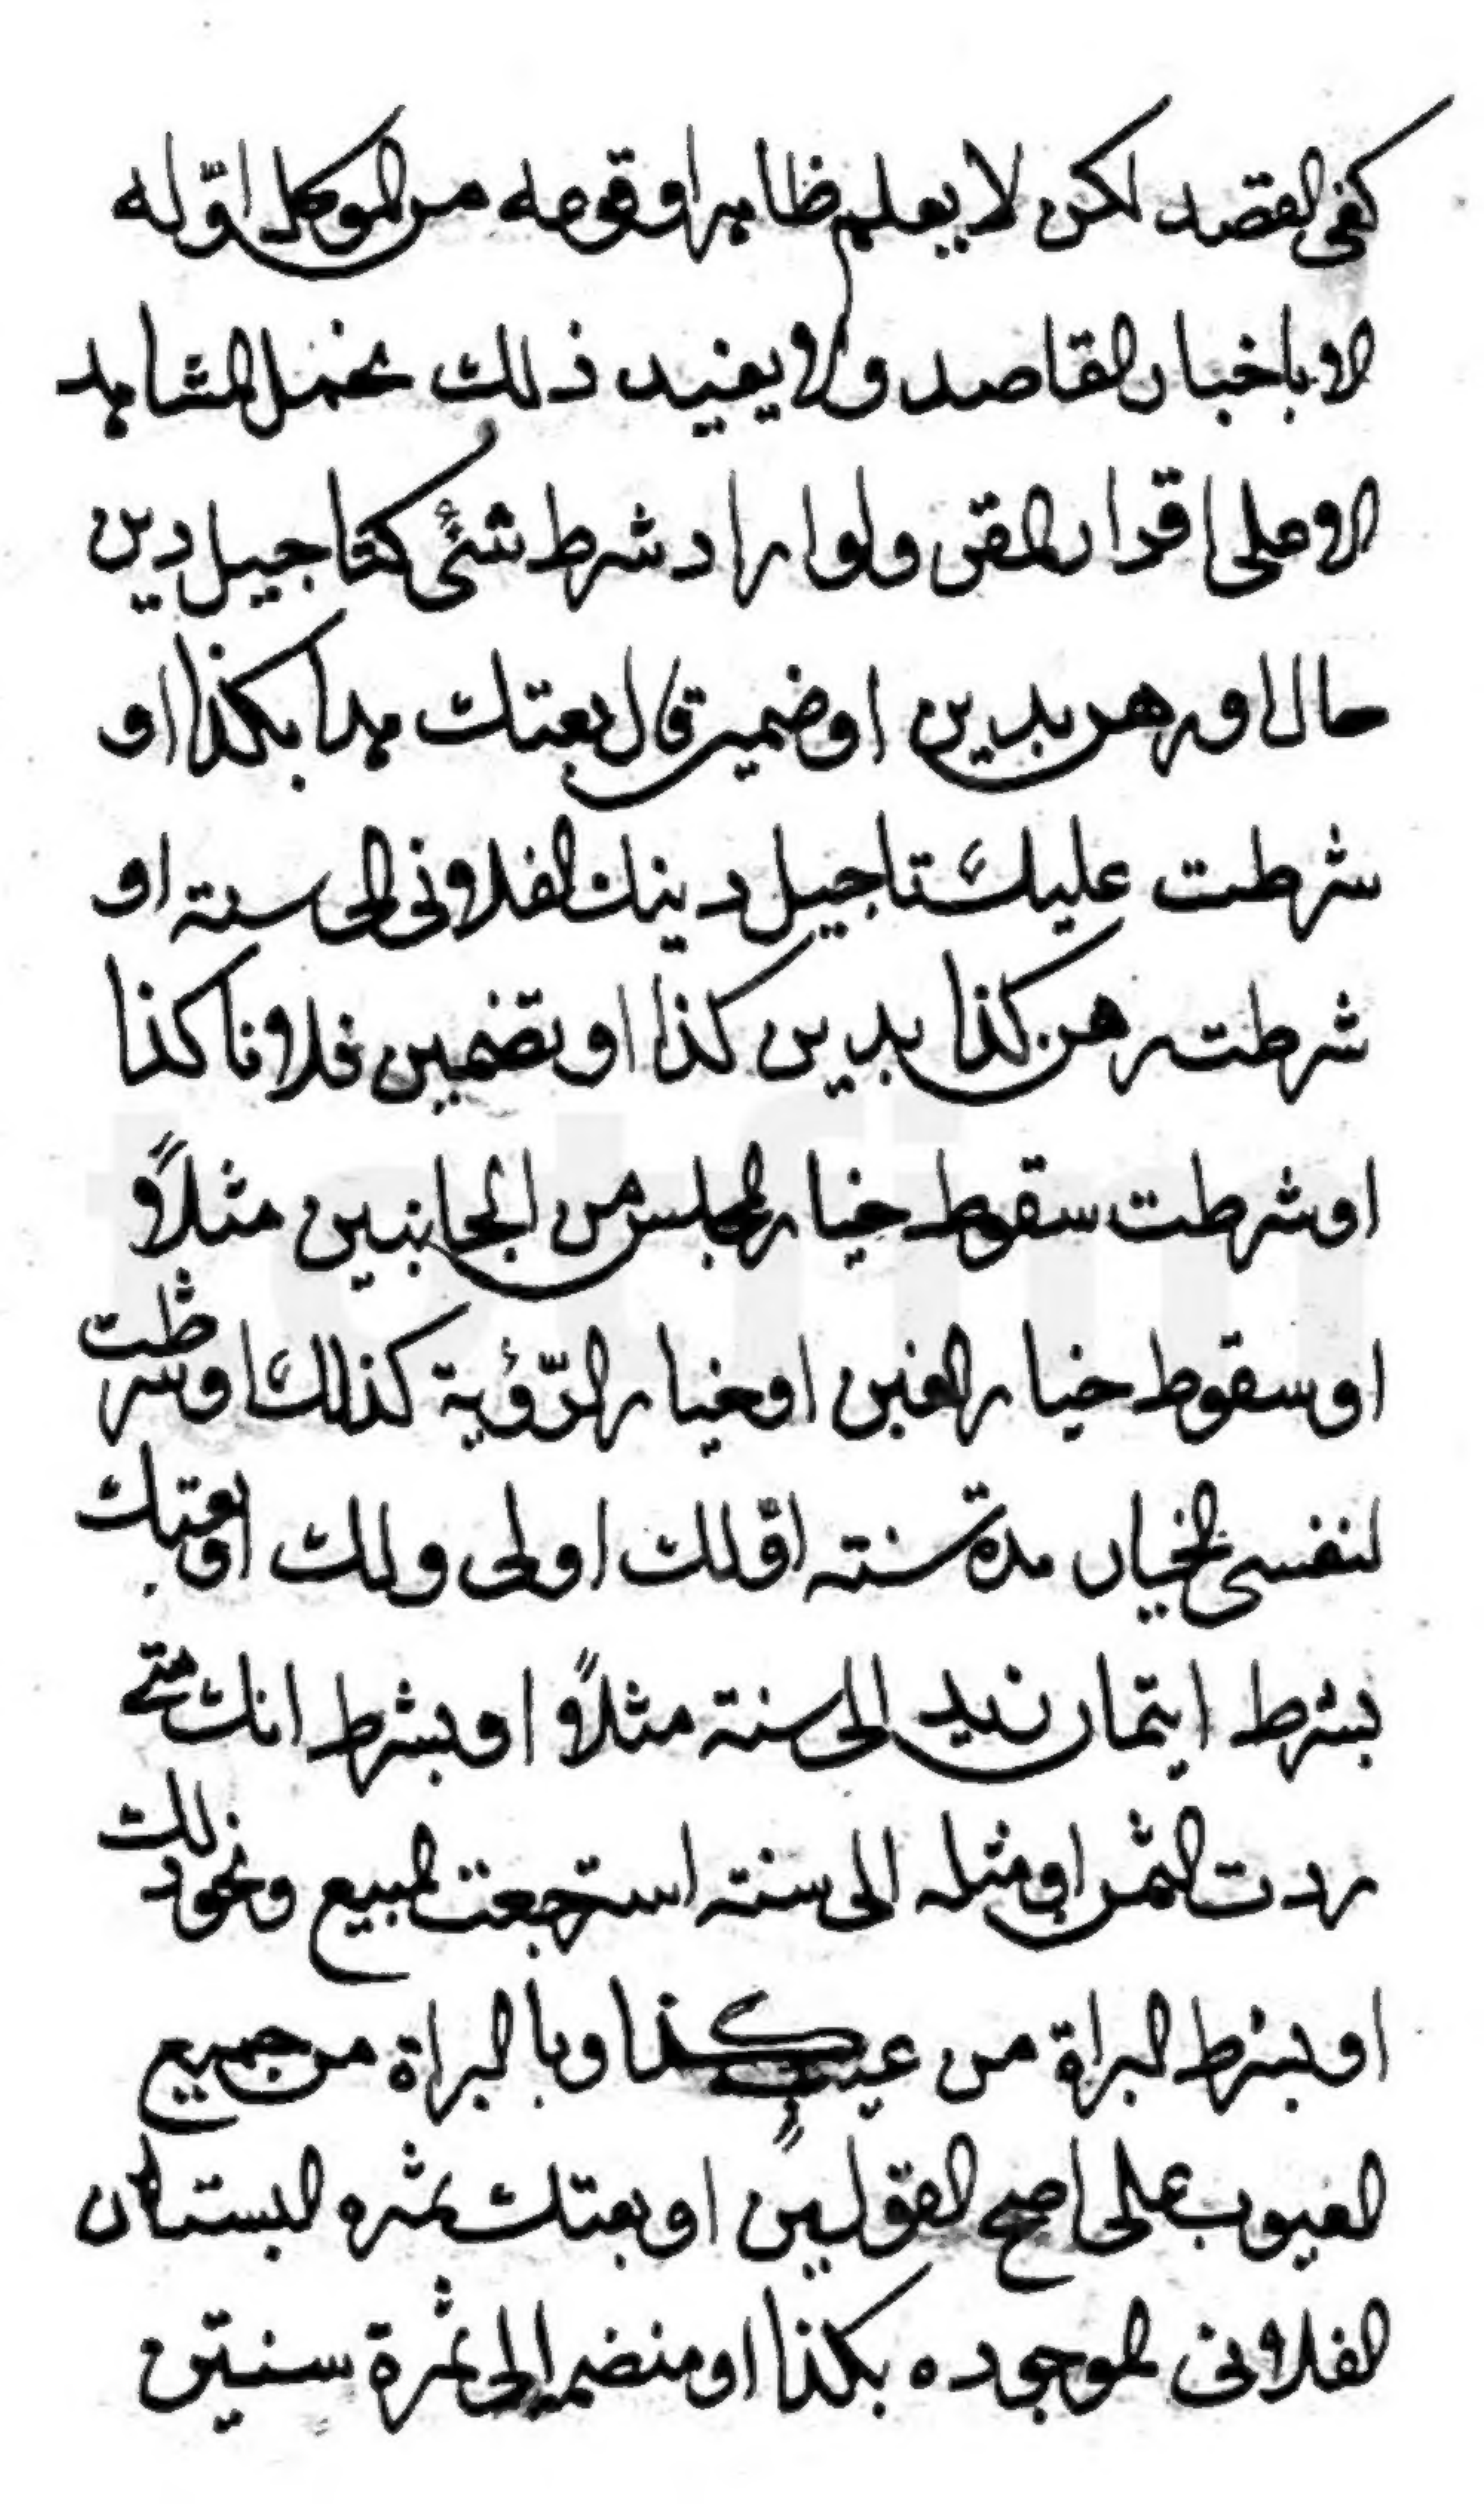 كفى القصد لكن لا يعلم ظاهرا وقوعه من الموكل اوّ له
الا باخبار القاصد ولا يفيد ذلك تحمل الشاهد
الا على اقرار المقر ولو اراد شرط شئ كتاجيل دين
حال او رهن بدين او ضمين قال بعتك هذا بكذا او
شرطت عليك تاجيل دينك الفلانى الى سنته او
شرطت رهن كذا بدين كذا او تضمين فلانا كذا
او شرطت سقوط خيار المجلس من الجانبين مثلاً و
او سقوط خيار الغبن او خيار الرّؤية كذلك او شرطت
لنفسى الخيار مدة سنته اوّ لك اولى ولك او بعتك
بشرط ايتمار زيد الى سنته مثلاً او بشرط انك متى
رددت الثمن او مثله الى سنته استرجعت المبيع ونحو ذلك
او بشرط البراة من عيب كذا وبا البراة من جميع
العيوب على اصح القولين او بعتك ثمره البستان
الفلانى الموجوده بكذا او منضما الى ثمرة سنتين